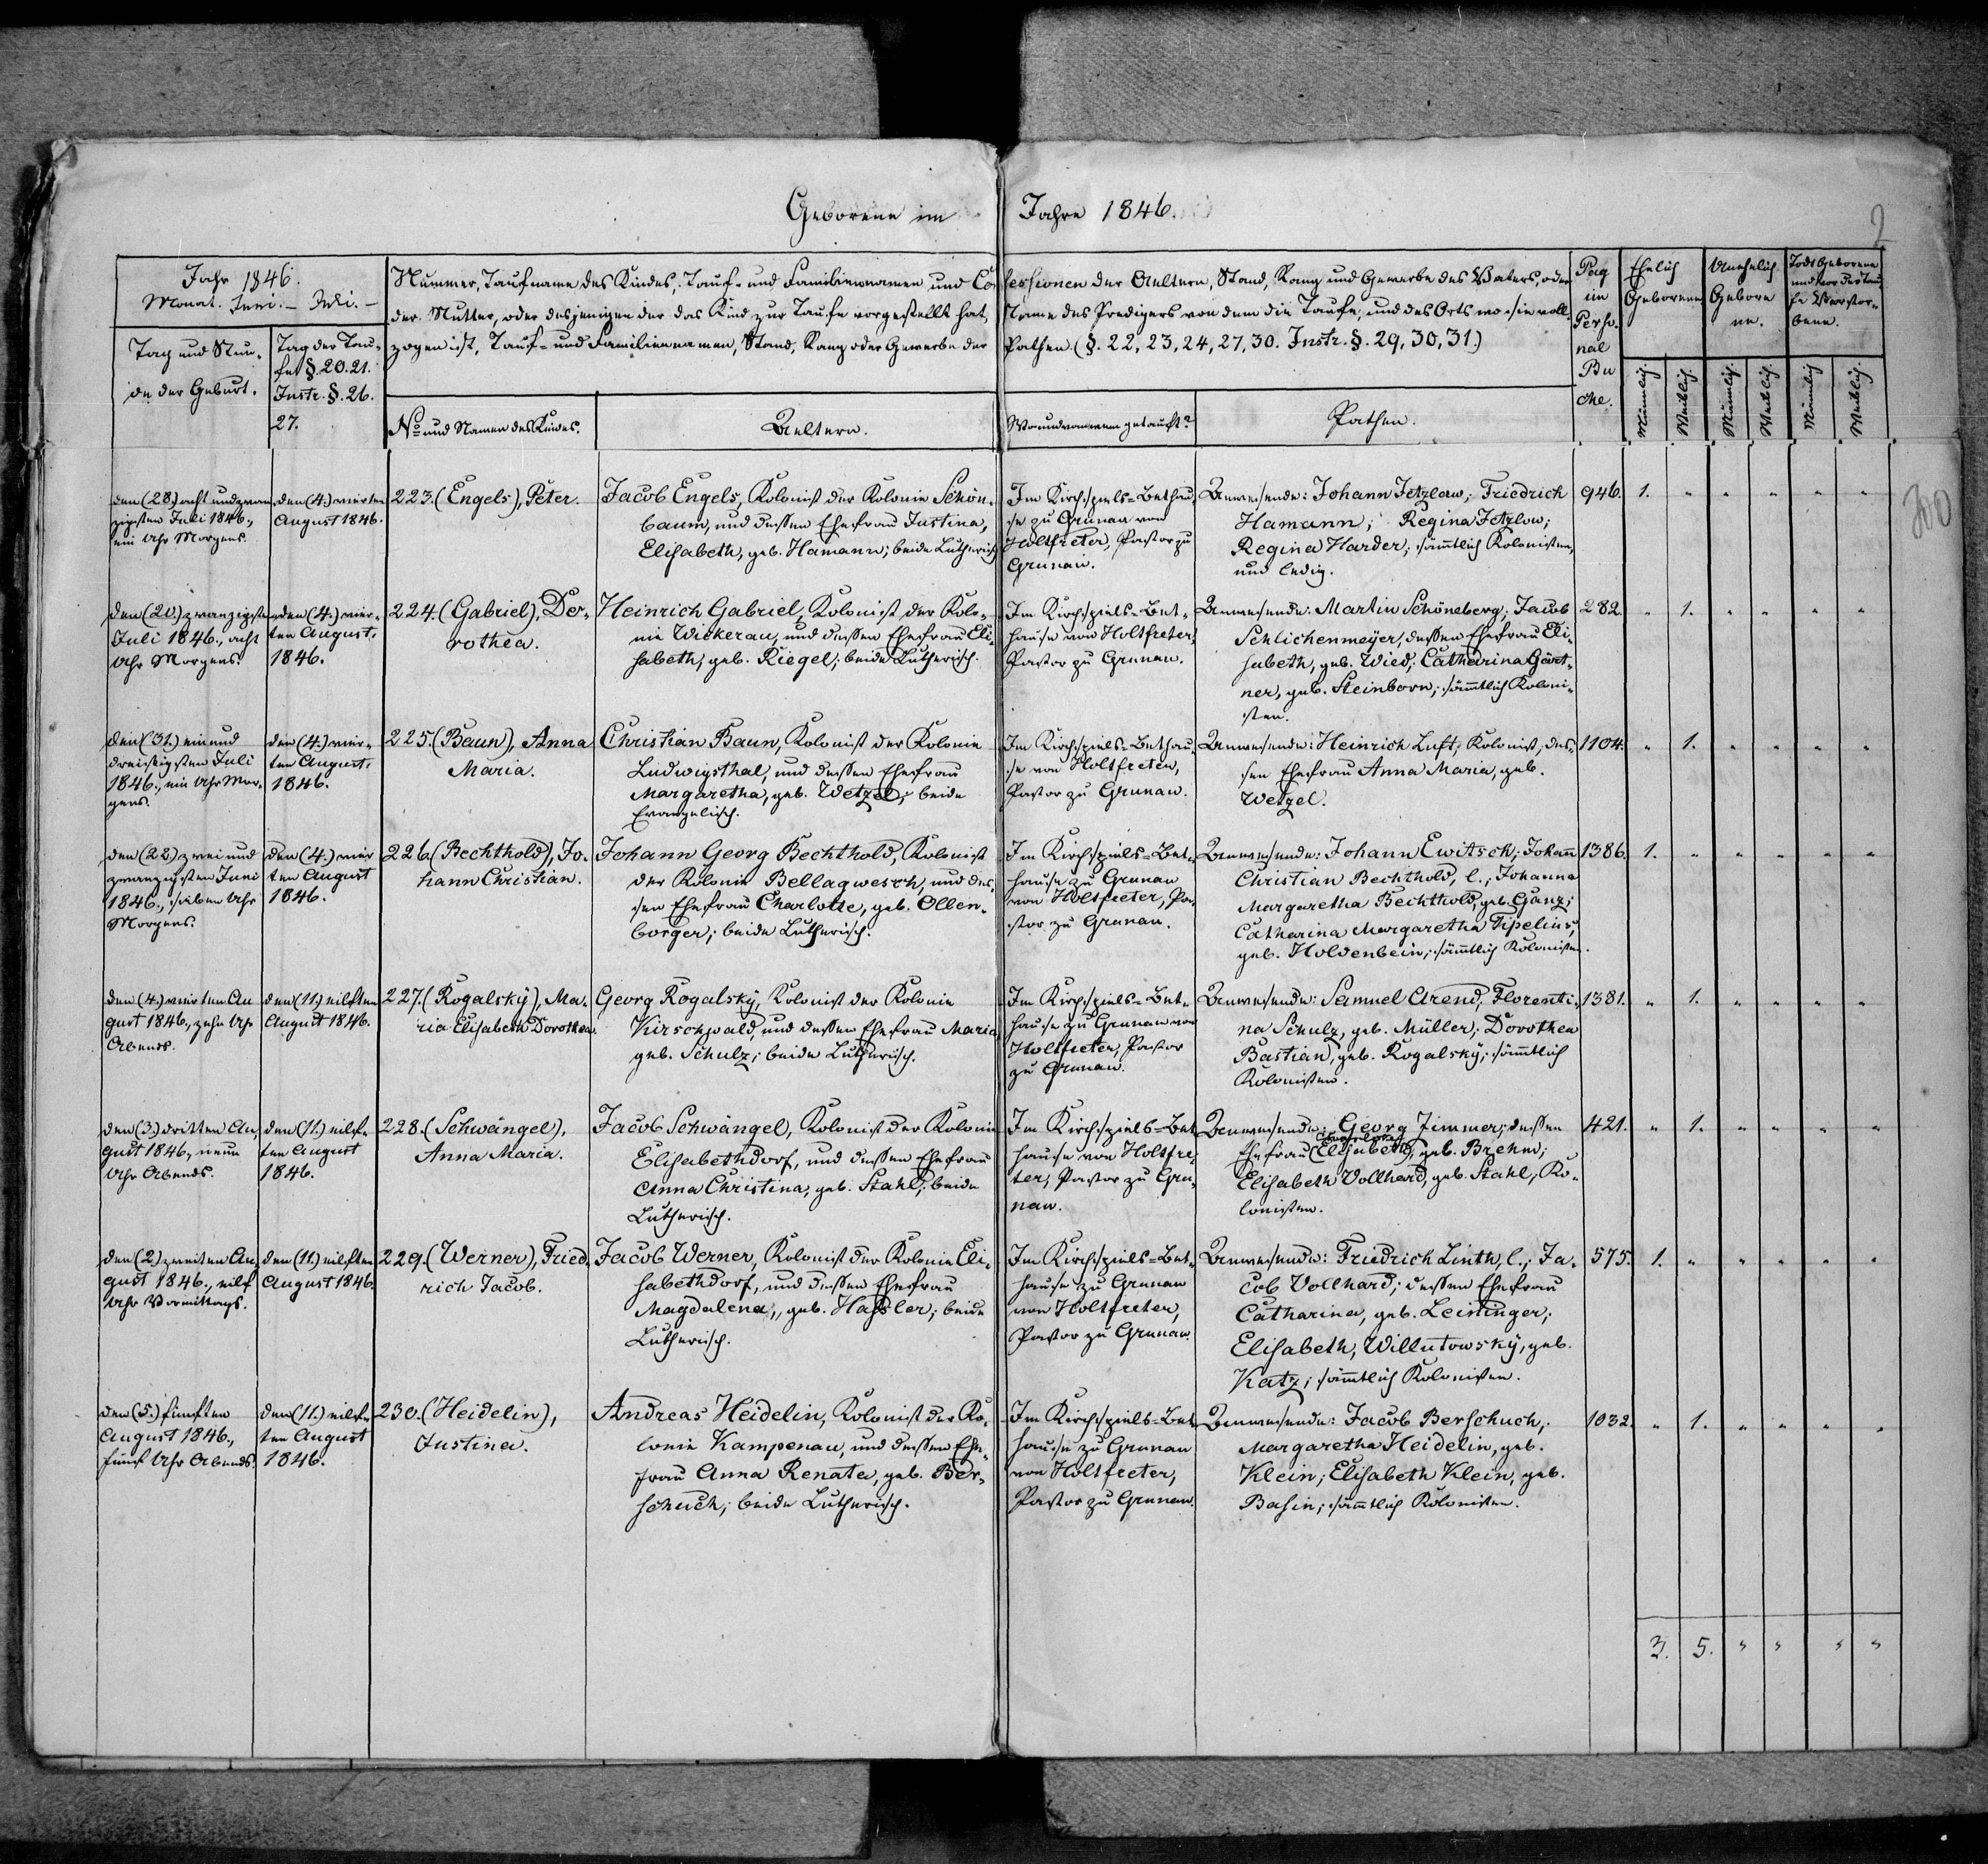 Geborene im Jahre 1846.
2
300
Jahr 1846.
Monat. Juni. – Juli. –
Tag und Stun-
de der Geburt.
Tag der Tau-
fe §. 20. 21.
Instr. §. 26.
27.
Nummer, Taufname des Kindes, Tauf- und Familiennamen und Confessionen der Aeltern, Stand, Rang und Gewerbe des Vaters, oder
der Mutter, oder desjenigen der das Kind zur Taufe vorgestellt hat, Name des Predigers von dem die Taufe, und des Orts wo sie voll-
zogen ist, Tauf- und Familiennamen, Stand, Rang oder Gewerbe der Pathen (§. 22, 23, 24, 27, 30. Instr. §. 29, 30, 31.)
No und Namen des Kindes.
Aeltern.
Wo und von wem getauft?
Pathen.
Pag
im
Perso-
nal
Bu
che.
Ehelich
Geborene
Unehelich
Gebore
ne.
Todt Geborene
und vor der Tau-
fe Verstor-
bene.
Männlich.
Weiblich.
Männlich.
Weiblich.
Männlich
Weiblich.
den (28.) acht und zwan
zigsten Juli 1846.,
ein Uhr Morgens.
den (4.) vierten
August 1846.
223. (Engels), Peter.
Jacob Engels, Kolonist der Kolonie Schön-
baum, und dessen Ehefrau Justina,
Elisabeth, geb. Hamann; beide Lutherisch
Im Kirchspiels-Bethau-
se zu Grunau von
Holtfreter, Pastor zu
Grunau.
Anwesende: Johann Jetzlow; Friedrich
Hamann; Regina Jetzlow;
Regina Harder; sämtlich Kolonisten,
und ledig.
946. 1. " " " " "
den (20.) zwanzigsten
Juli 1846., acht
Uhr Morgens.
den (4.) vier-
ten August,
1846.
224. (Gabriel), Do-
rothea.
Heinrich Gabriel, Kolonist der Kolo-
nie Wickerau, und dessen Ehefrau Eli-
sabeth, geb. Riegel; beide Lutherisch.
Im Kirchspiels-Bet-
hause von Holtfreter,
Pastor zu Grunau.
Anwesende: Martin Schöneberg; Jacob
Schlichenmeÿer, dessen Ehefrau Eli-
sabeth, geb. Wied; Catharina Gärt-
ner, geb. Steinborn; sämtlich Koloni-
sten.
282. " 1. " " " "
den (31.) ein und
dreißigsten Juli
1846., ein Uhr Mor-
gens.
den (4.) vier-
ten August,
1846.
225. (Baun), Anna
Maria.
Christian Baun, Kolonist der Kolonie
Ludwigsthal, und dessen Ehefrau
Margaretha, geb. Wetzel; beide
Evangelisch.
Im Kirchspiels-Bethau-
se von Holtfreter,
Pastor zu Grunau.
Anwesende: Heinrich Luft, Kolonist, des-
sen Ehefrau Anna Maria, geb.
Wetzel.
1104. " 1. " " " "
den (22) zwei und
zwanzigsten Juni
1846., sieben Uhr
Morgens.
den (4.) vier
ten August
1846.
226. (Bechthold), Jo-
hann Christian.
Johann Georg Bechthold, Kolonist
der Kolonie Bellagwesch, und des-
sen Ehefrau Charlotte, geb. Ollen-
borger; beide Lutherisch.
Im Kirchspiels-Bet-
hause zu Grunau
von Holtfreter, Pa-
stor zu Grunau.
Anwesende: Johann Ewitsch; Johann
Christian Bechthold, l.; Johanna
Margaretha Bechthold, geb. Ganz;
Catharina Margaretha Tipelius,
geb. Holdenbein; sämtlich Kolonisten.
1386. 1. " " " " "
den (4.) vierten Au-
gust 1846., zehn Uhr
Abends.
den (11.) eilften
August 1846.
227. (Rogalskÿ), Ma-
ria Elisabeth Dorothea.
Georg Rogalskÿ, Kolonist der Kolonie
Kirschwald, und dessen Ehefrau Maria,
geb. Schulz; beide Lutherisch.
Im Kirchspiels-Bet-
hause zu Grunau von
Holtfreter, Pastor
zu Grunau.
Anwesende: Samuel Arend; Florenti-
na Schulz, geb. Müller; Dorothea
Bastian, geb. Rogalskÿ; sämtlich
Kolonisten.
1381. " 1. " " " "
den (3.) dritten Au-
gust 1846., neun
Uhr Abends.
den (11.) eilf-
ten August
1846.
228. (Schwängel),
Anna Maria.
Jacob Schwängel, Kolonist der Kolonie
Elisabethdorf, und dessen Ehefrau
Anna Christina, geb. Stahl; beide
Lutherisch.
Im Kirchspiels-Bet
hause von Holtfre-
ter, Pastor zu Gru-
nau.
Anwesende: Georg Zimmer; dessen
Ehefrau (Elisabeth), geb. Brehm;
Elisabeth Vollhard, geb. Stahl, Ko-
lonisten.
421. " 1. " " " "
den (2) zweiten Au-
gust 1846., eilf
Uhr Vormittags.
den (11.) eilften
August 1846.
229. (Werner), Fried-
rich Jacob.
Jacob Werner, Kolonist der Kolonie Eli-
sabethdorf, und dessen Ehefrau
Magdalena, geb. Hassler; beide
Lutherisch.
Im Kirchspiels-Bet-
hause zu Grunau
von Holtfreter,
Pastor zu Grunau.
Anwesende: Friedrich Linth, l.; Ja-
cob Vollhard; dessen Ehefrau
Catharina, geb. Leistinger;
Elisabeth, Willutowskÿ, geb.
Katz; sämtlich Kolonisten.
575. 1. " " " " "
den (5.) fünften
August 1846.,
fünf Uhr Abends.
den (11.) eilf-
ten August
1846.
230. (Heidelin),
Justina.
Andreas Heidelin, Kolonist der Ko-
lonie Kampenau, und dessen Ehe-
frau Anna Renata, geb. Ber-
schuch; beide Lutherisch.
Im Kirchspiels-Bet
hause zu Grunau
von Holtfreter,
Pastor zu Grunau.
Anwesende: Jacob Berschuch;
Margaretha Heidelin, geb.
Klein; Elisabeth Klein, geb.
Basin; sämtlich Kolonisten.
1032. " 1. " " " "
3. 5. " " " "